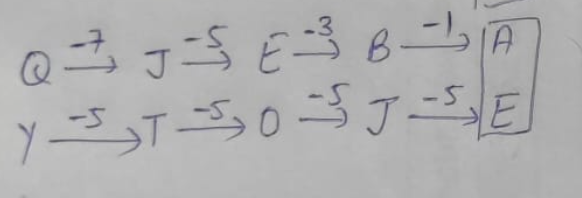 Q -7→ J -5→ E -3→ B -1→ A
Y -5→ T -5→ O -5→ J -5→ E